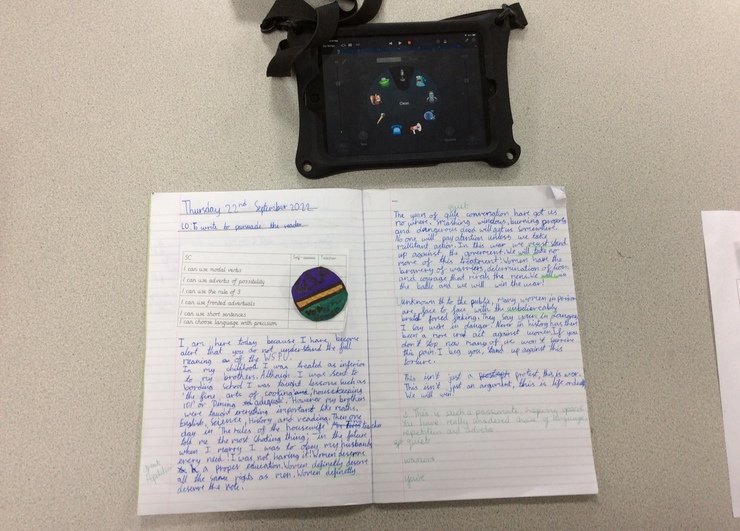 Clean
Thursday 22nd September 2022
LO: To write to persuade the reader
SC Self-assess Teacher
I can use modal verbs
I can use adverbs of possibility
I can use the rule of 3
I can use fronted adverbials
I can use short sentences
I can choose language with precision
I am here today because I have become
alert that you do not understand the full
meaning of the W.S.P.U.
In my childhood I was treated as inferior
to my brothers. Although I was sent to
bording school I was taught lessons such as
'the fine arts of cooking, housekeeping
101' or Dining
were taught everything important like maths,
English, science, History and reading. Then one
day in 'The rules of the housewife' teacher
told me the most shocking thing; in the future
when I marry I was to obey my husbands
every need! I was not having it! Women deserve
a proper education. Women definetly deserve
all the same rights as men. Women definetly
deserve the vote.
great
repetition
quiet
The years of quite conversation have got us
no where. Smashing windows, burning property
and dangerous deed will get us somewhere.
No one will pay attention unless we take
militant action. In this war we must stand
up against the goverment. We will take no
more of this treatment. Women have the
bravery of warriers, determination of lions
and courage that rivals the mens. We will win
the battle and we will win the war!
Unknown to the public, many women in prison
are face to face with the unbelievably
brutal forced feeding. They say women in danger,
I say were in danger. Never in history has there
been a more cruel act against women. If you
don't stop now many of us won't survive
this pain. I beg you, stand up against this
torture.
This isn't just a protest, this is war.
This isn't just an argument, this is life or death.
We will win!
This is such a passionate, inspiring speech
You have really considered choice of language,
repetition and adverbs
sp: quiet
warriors
you've